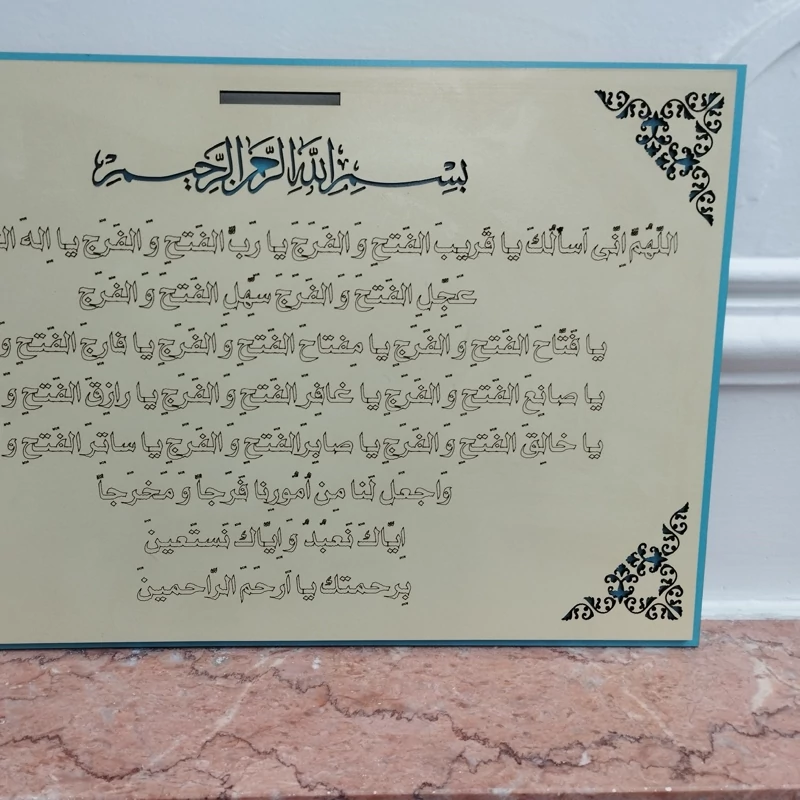 بسم الله الرحمن الرحیم
اللّهُمَّ اِنّی اَسأَلُكَ یا قَریبَ الفَتحِ وَ الفَرَجِ یا رَبَّ الفَتحِ وَ الفَرَجِ یا اِلهَ
عَجِّلِ الفَتحَ وَ الفَرَجَ سَهِّلِ الفَتحَ وَ الفَرَجَ
یا فَتّاحَ الفَتحِ وَ الفَرَجِ یا مِفتاحَ الفَتحِ وَ الفَرَجِ یا فارِجَ الفَتحِ وَ
یا صانِعَ الفَتحِ وَ الفَرَجِ یا غافِرَ الفَتحِ وَ الفَرَجِ یا رازِقَ الفَتحِ وَ
یا خالِقَ الفَتحِ وَ الفَرَجِ یا صابِرَ الفَتحِ وَ الفَرَجِ یا ساتِرَ الفَتحِ وَ
وَاجعَل لَنا مِن اُمُورِنا فَرَجاً وَ مَخرَجاً
اِیّاكَ نَعبُدُ وَ اِیّاكَ نَستَعینَ
بِرحمتك یا اَرحَمَ الرّاحمینَ